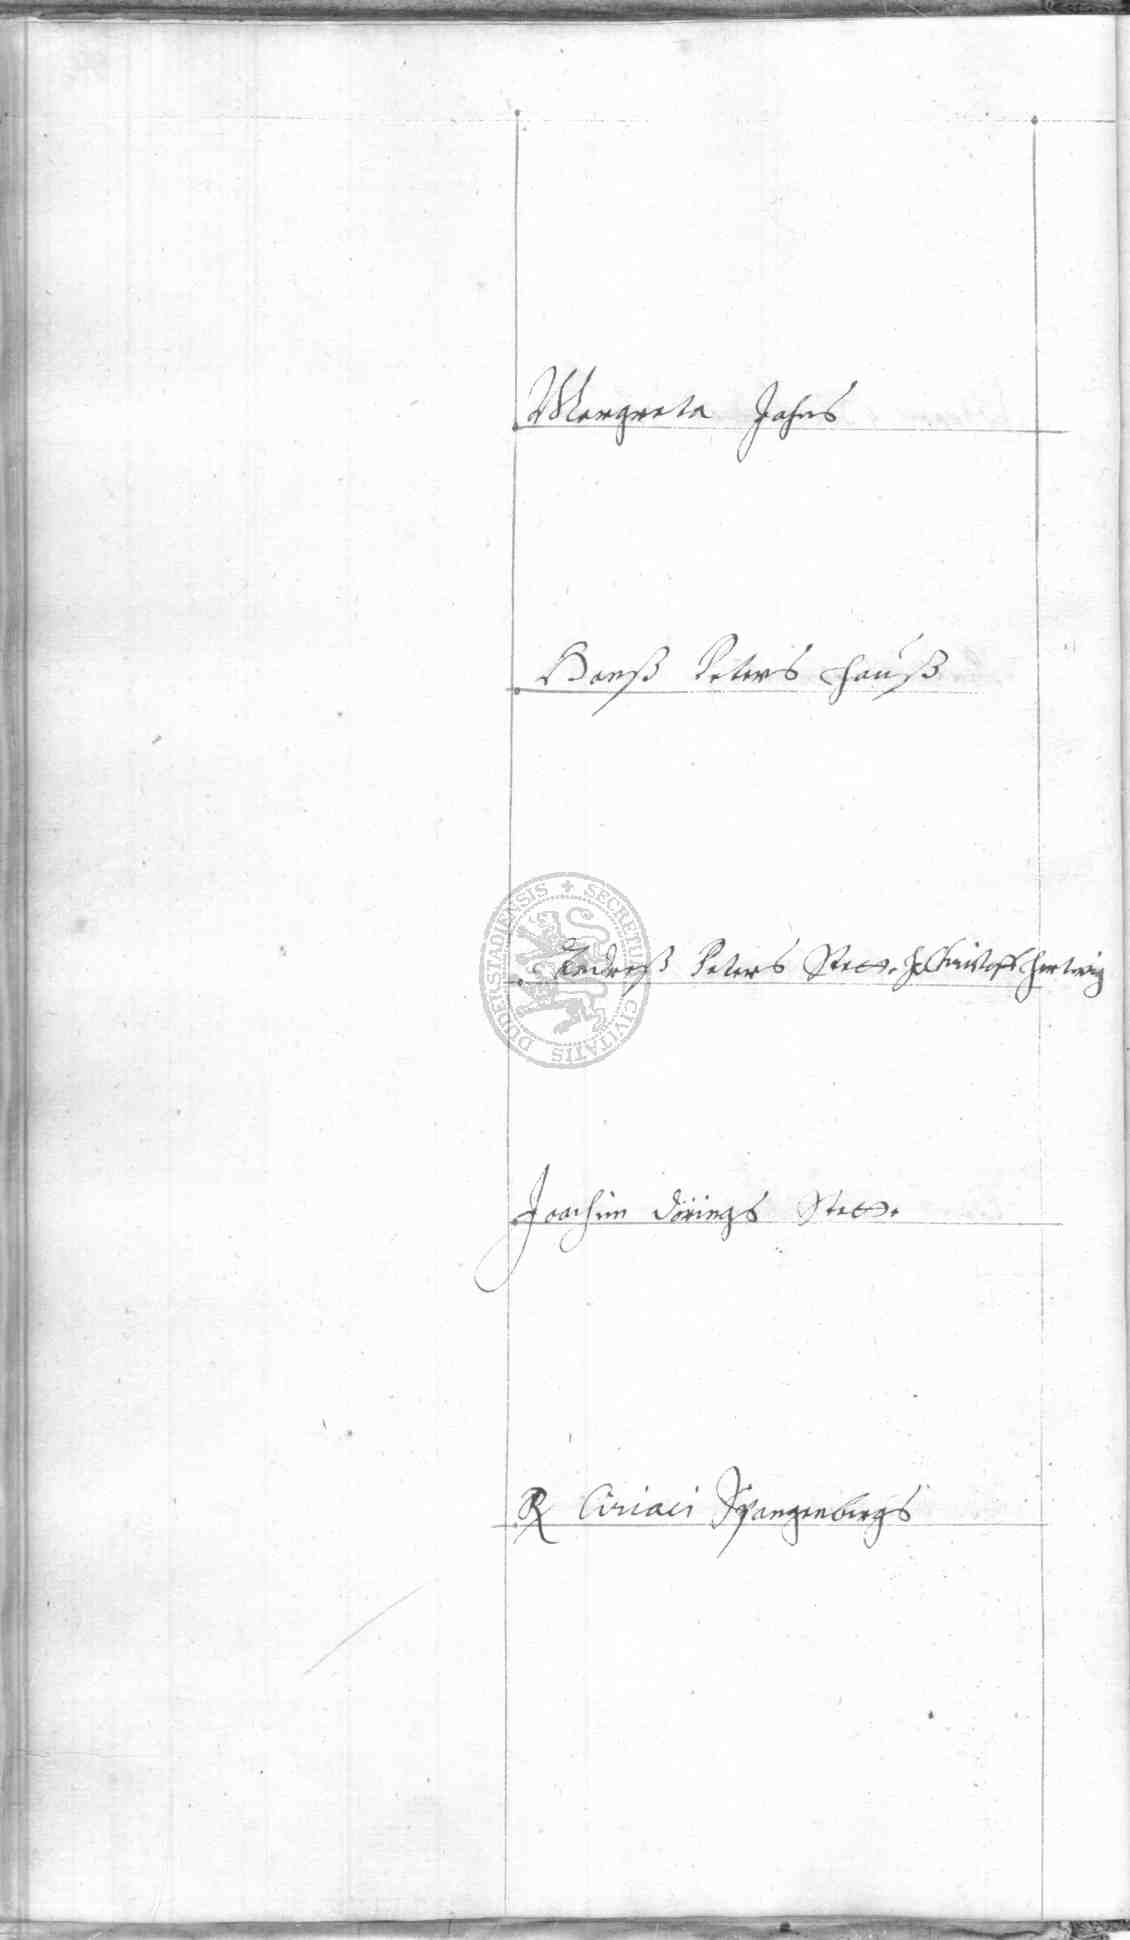 Margreta Jahns
Hanß Peters Hauß
Andreß Peters Stette. H. Christoff Hertwig
Joachim Dörings Stette.
R Ciriaci Spangenbergs
SECRETUM CIVITATIS DUDERSTADIENSIS